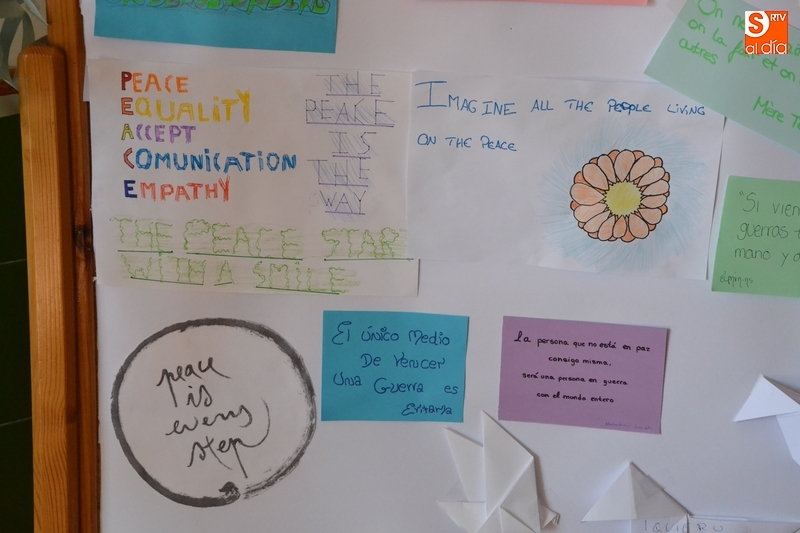 S RTV
al día
On
on la
autres
Mère
PEACE
EQUALITY
ACCEPT
COMUNICATION
EMPATHY
THE
PEACE
IS
THE
WAY
THE PEACE STAR
WITH A SMILE
IMAGINE ALL THE PEOPLE LIVING
ON THE PEACE
"Si
guerras
mano y
peace
is
every
step
El único Medio
De Vencer
Una Guerra es
Evitarla
La persona que no está en paz
consigo misma,
será una persona en guerra
con el mundo entero